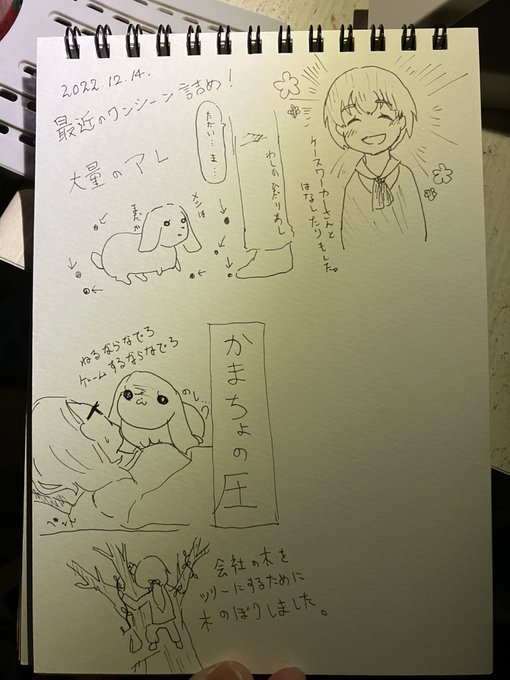 2022.12.14.
最近のワンシーン詰め!
大量のアレ
ただい…ま…
わしのひだりあし
メシは
まだか
ケースワーカーさんと
はなしたりもした。
ねるならなでろ
ゲームするならなでろ
のし…
かまちょの圧
会社の木を
ツリーにするために
木のぼりしました。